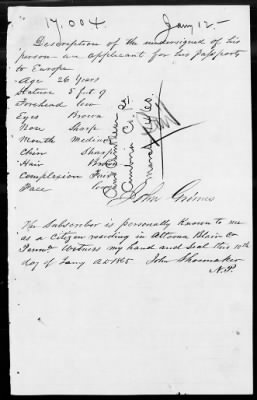 17.004 Jany 12.-
Description of the undersigned of his
person - an applicant for his passport
to Europe
Age 26 Years
Stature 5 fut 9
Forehead low
Eyes Brown
Nose Sharp
Mouth Medium
Chin Sharp
Hair Brown
Complexion Fair
Face
Cambria Co.
John Grimes
The Subscriber is personally Known to me
as a Citizen residing in Altoona Blair Co
Penna Witness my hand and Seal this 10th
day of Jany AD 1865 John Shoemaker
N.P.